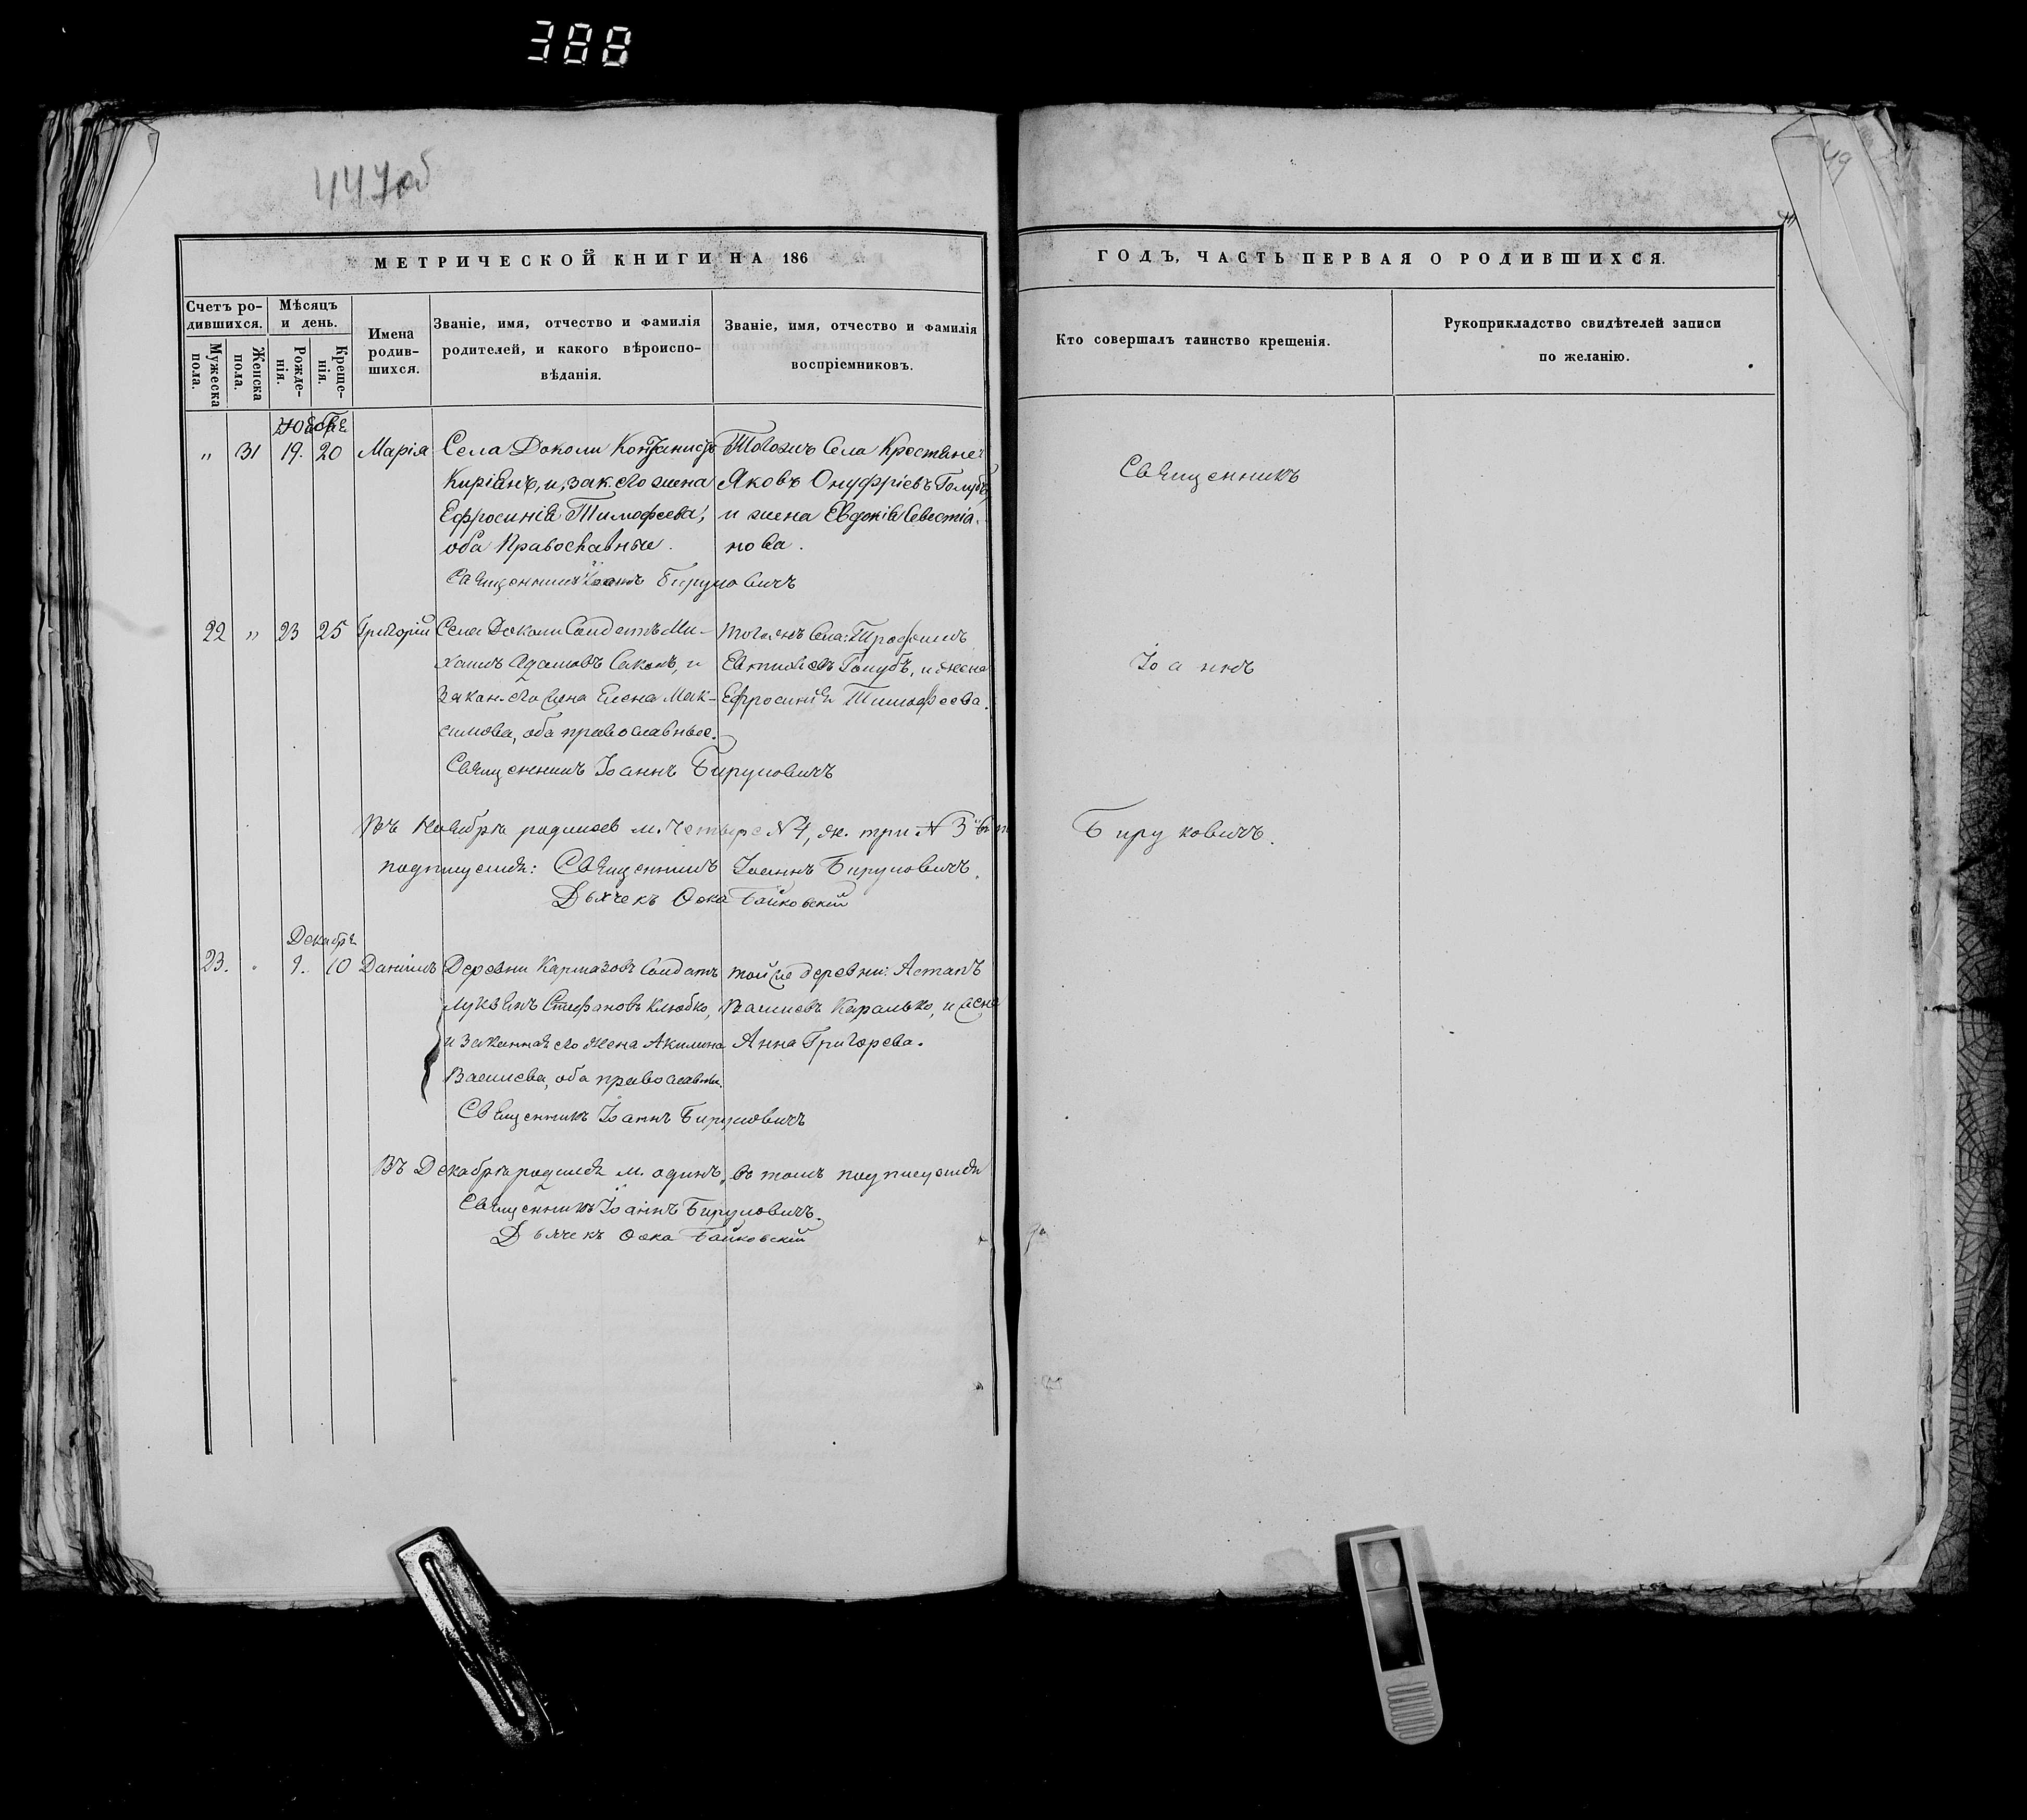 388
447об
49
МЕТРИЧЕСКОЙ КНИГИ НА 186
ГОДЪ, ЧАСТЬ ПЕРВАЯ О РОДИВШИХСЯ.
Счетъ ро-
дившихся.
Мужеска
пола.
Женска
пола.
Мѣсяцъ
и день.
Рожде-
нія.
Креще-
нія.
Имена
родив-
шихся.
Званіе, имя, отчество и фамилія
родителей, и какого вѣроиспо-
вѣданія.
Званіе, имя, отчество и фамилія
воспріемниковъ.
Кто совершалъ таинство крещенія.
Рукоприкладство свидѣтелей записи
по желанію.
Ноября
" 31 19. 20 Марія
Села Доколи
и, зак. его жена
Ефросинія Тимофеева,
оба Православные.
Священникъ Іоаннъ Бируковичъ
Тогожъ Села Крестяне:
Яковъ Онуфріевъ Голубъ,
и жена Евдокія Севестіа-
нова.
22 " 23 25 Григорій
Села Доколи Солдатъ Ми-
хаилъ Адамовъ Саколъ, и
Закон. его жена Елена Мак-
симова, оба православные.
Священникъ Іоаннъ Бируковичъ
тогожъ Села: Трофимъ
Голубъ, и жена
Ефросинія Тимофеева.
Въ Ноябрѣ родилось м. четыре N 4, ж. три N 3
подписуемся: Священникъ Іоаннъ Бируковичъ.
Дьячекъ Фока Байковскій
Декабря
23. " 9. 10 Даніилъ
Деревни Кармазовъ Солдатъ
Лукьянъ Стефановъ Клюбко,
и Законная его жена Акилина
Васильева, оба православны.
Священникъ Іоаннъ Бируковичъ
тойже деревни: Астапъ
Каралько, и жена
Анна Григорева.
Въ Декабрѣ родился м. одинъ, въ томъ подписуемся
Священникъ Іоаннъ Бируковичъ.
Дьячекъ Фока Байковскій
Священникъ
Іоаннъ
Бируковичъ.